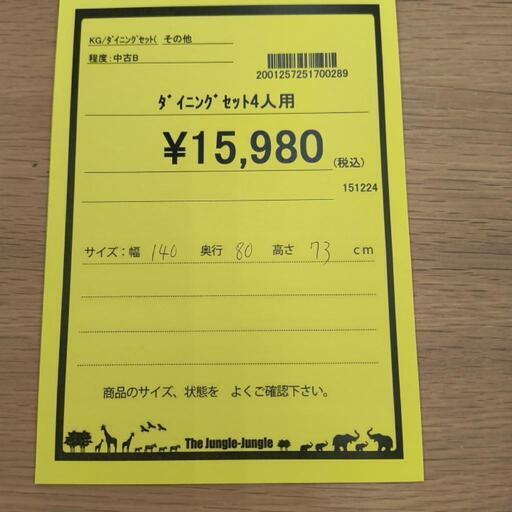 KG/ﾀﾞｲﾆﾝｸﾞｾｯﾄ( その他
程度:中古B
2001257251700289
ﾀﾞｲﾆﾝｸﾞｾｯﾄ4人用
¥15,980(税込)
151224
サイズ:幅 140 奥行 80 高さ 73 cm
商品のサイズ、状態を よくご確認下さい。
The Jungle-Jungle